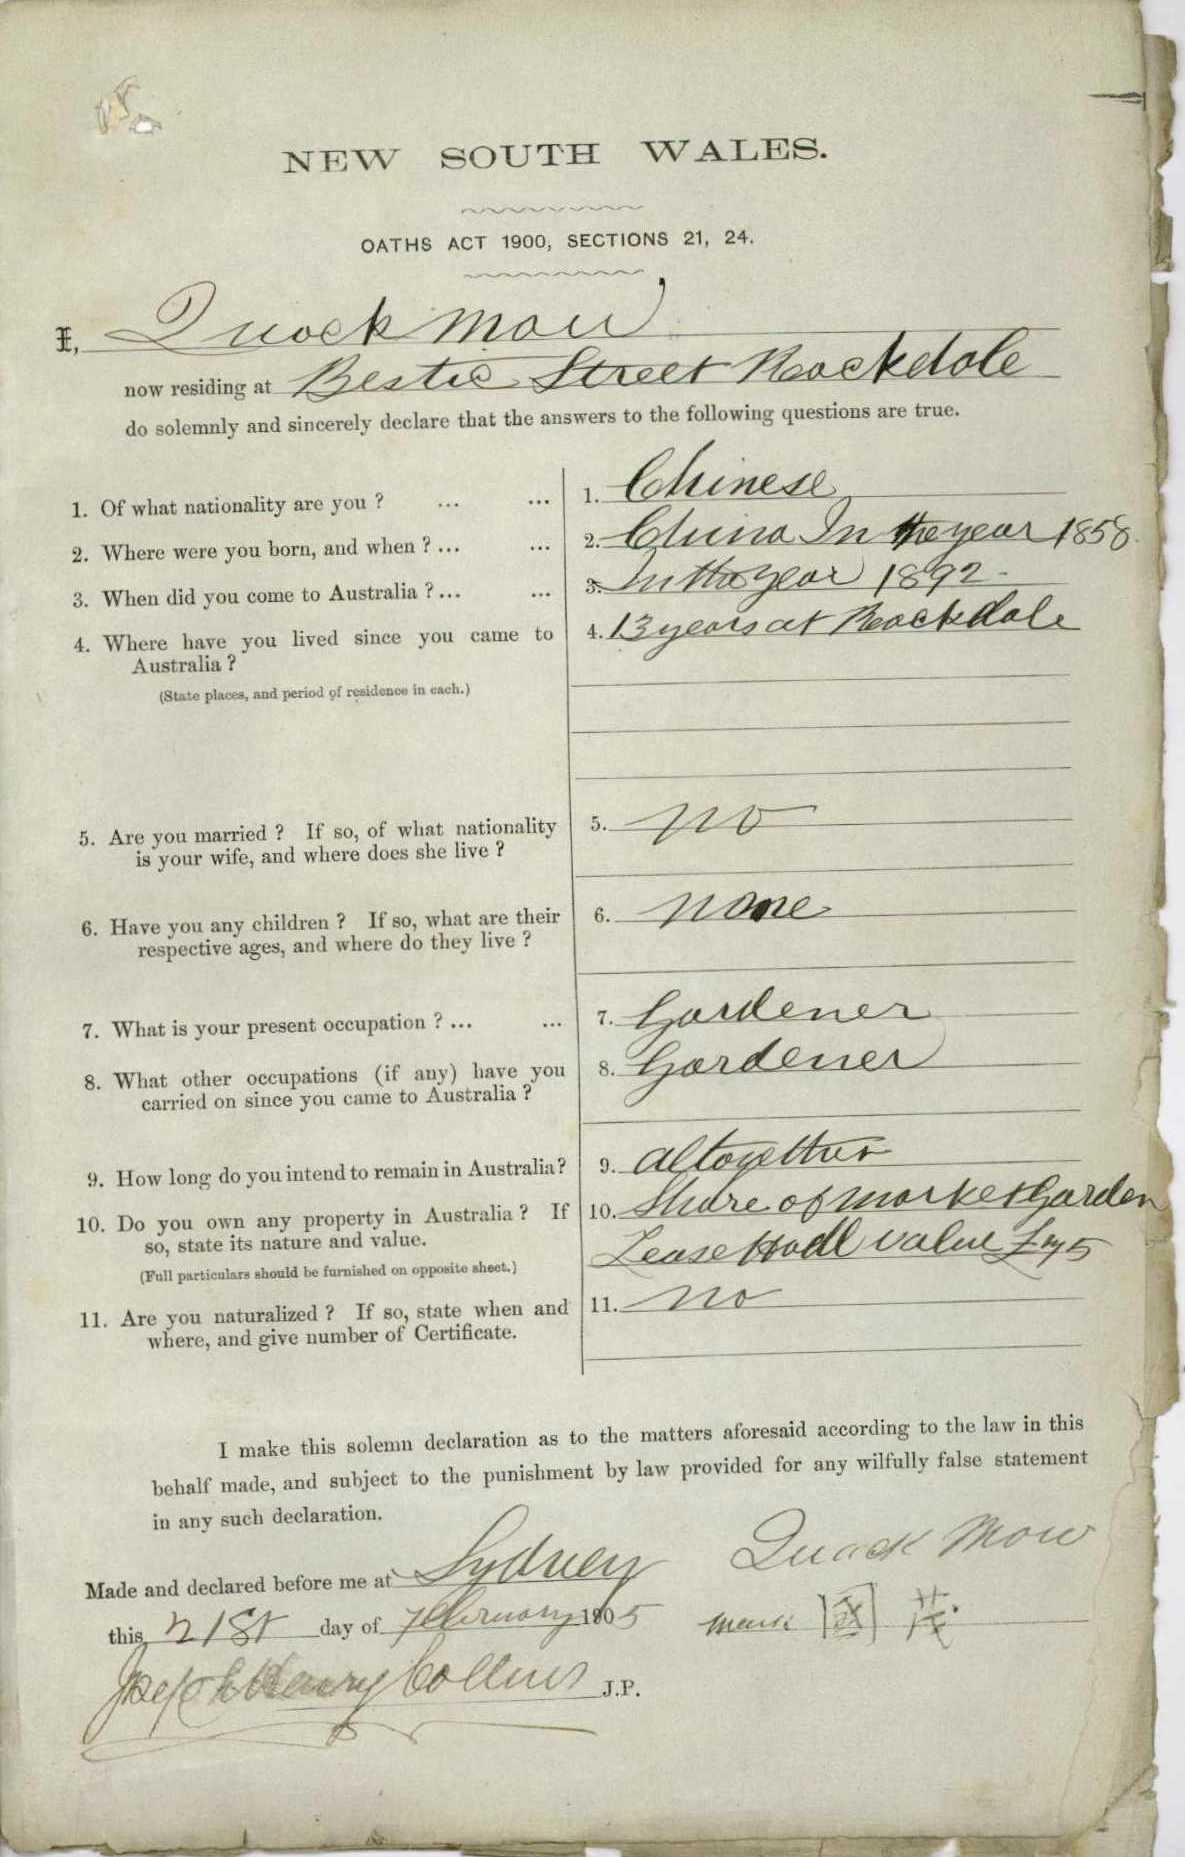 NEW SOUTH WALES.
OATHS ACT 1900, SECTIONS 21, 24.
I, Quock Mow
now residing at Bestic Street Rockdale
do solemnly and sincerely declare that the answers to the following questions are true.
1. Of what nationality are you ? ... ... 1. Chinese
2. Where were you born, and when ? ... ... 2. China In the year 1858.
3. When did you come to Australia ? ... ... 3. In the year 1892.
4. Where have you lived since you came to 4. 13 years at Rockdale
Australia ?
(State places, and period of residence in each.)
5. Are you married ? If so, of what nationality 5. no
is your wife, and where does she live ?
6. Have you any children ? If so, what are their 6. none
respective ages, and where do they live ?
7. What is your present occupation ? ... ... 7. Gardener
8. What other occupations (if any) have you 8. Gardener
carried on since you came to Australia ?
9. How long do you intend to remain in Australia? 9. altogether
10. Do you own any property in Australia ? If 10. Share of market Garden
so, state its nature and value. Lease Hodl value £
(Full particulars should be furnished on opposite sheet.)
11. Are you naturalized ? If so, state when and 11. no
where, and give number of Certificate.
I make this solemn declaration as to the matters aforesaid according to the law in this
behalf made, and subject to the punishment by law provided for any wilfully false statement
in any such declaration.
Quock Mow
Made and declared before me at Sydney
this 21st day of February 1905 mark
Joseph Henry Collins J.P.